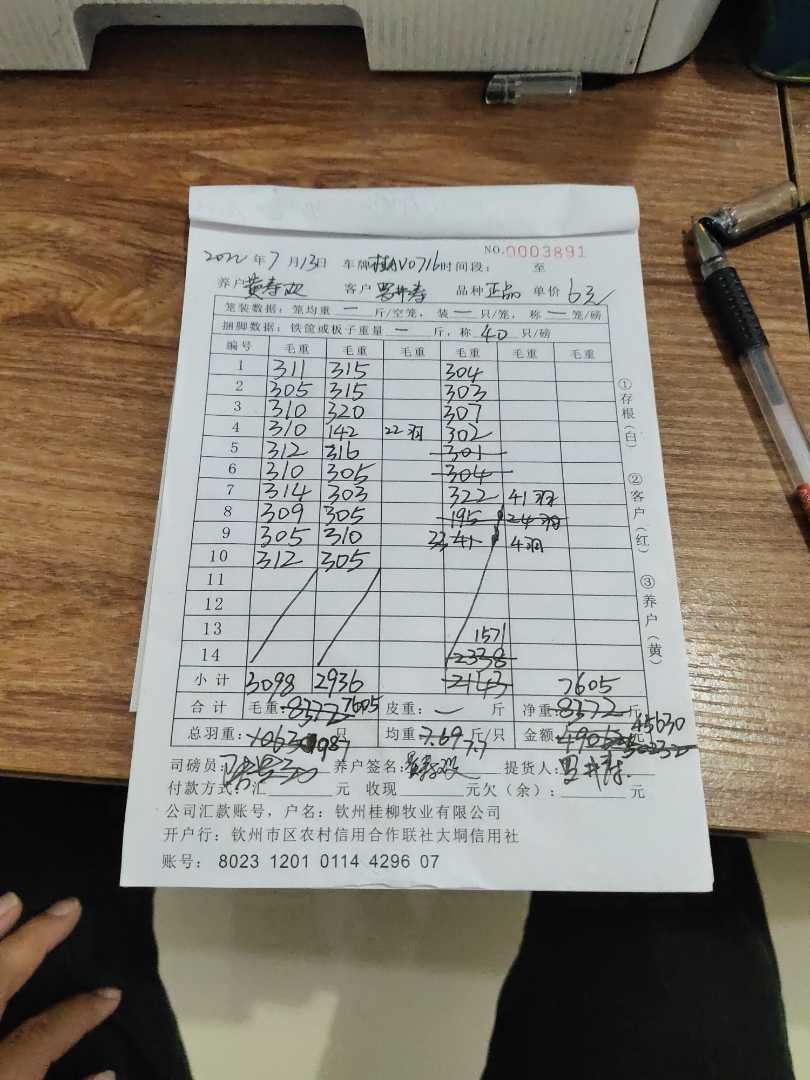 NO.0003891
2022年7月13日 车牌桂AV0716时间段： 至
养户 客户 品种 正品 单价 6元
笼装数据：笼均重 一 斤/空笼，装 一 只/笼，称 一 笼/磅
捆脚数据：铁筐或板子重量 一 斤，称 40 只/磅
编号 毛重 毛重 毛重 毛重 毛重 毛重
1 311 315 304
2 305 315 303
3 310 320 307
4 310 142 22羽 302
5 312 316 301
6 310 305 304
7 314 303 322 41羽
8 309 305 195 24羽
9 305 310 33 41 4羽
10 312 305
11
12
13 1571
14 2338
小计 3098 2936 2143 7605
合计 毛重：8372 7605 皮重：一 斤 净重：8372 斤
45630
总羽重： 987 只 均重 7.69 斤/只 金额： 元
7.7 50232
司磅员： 养户签名： 提货人：
付款方式：汇 元 收现 元欠（余）： 元
公司汇款账号，户名：钦州桂柳牧业有限公司
开户行：钦州市区农村信用合作联社大垌信用社
账号：8023 1201 0114 4296 07
①存根（白）
②客户（红）
③养户（黄）